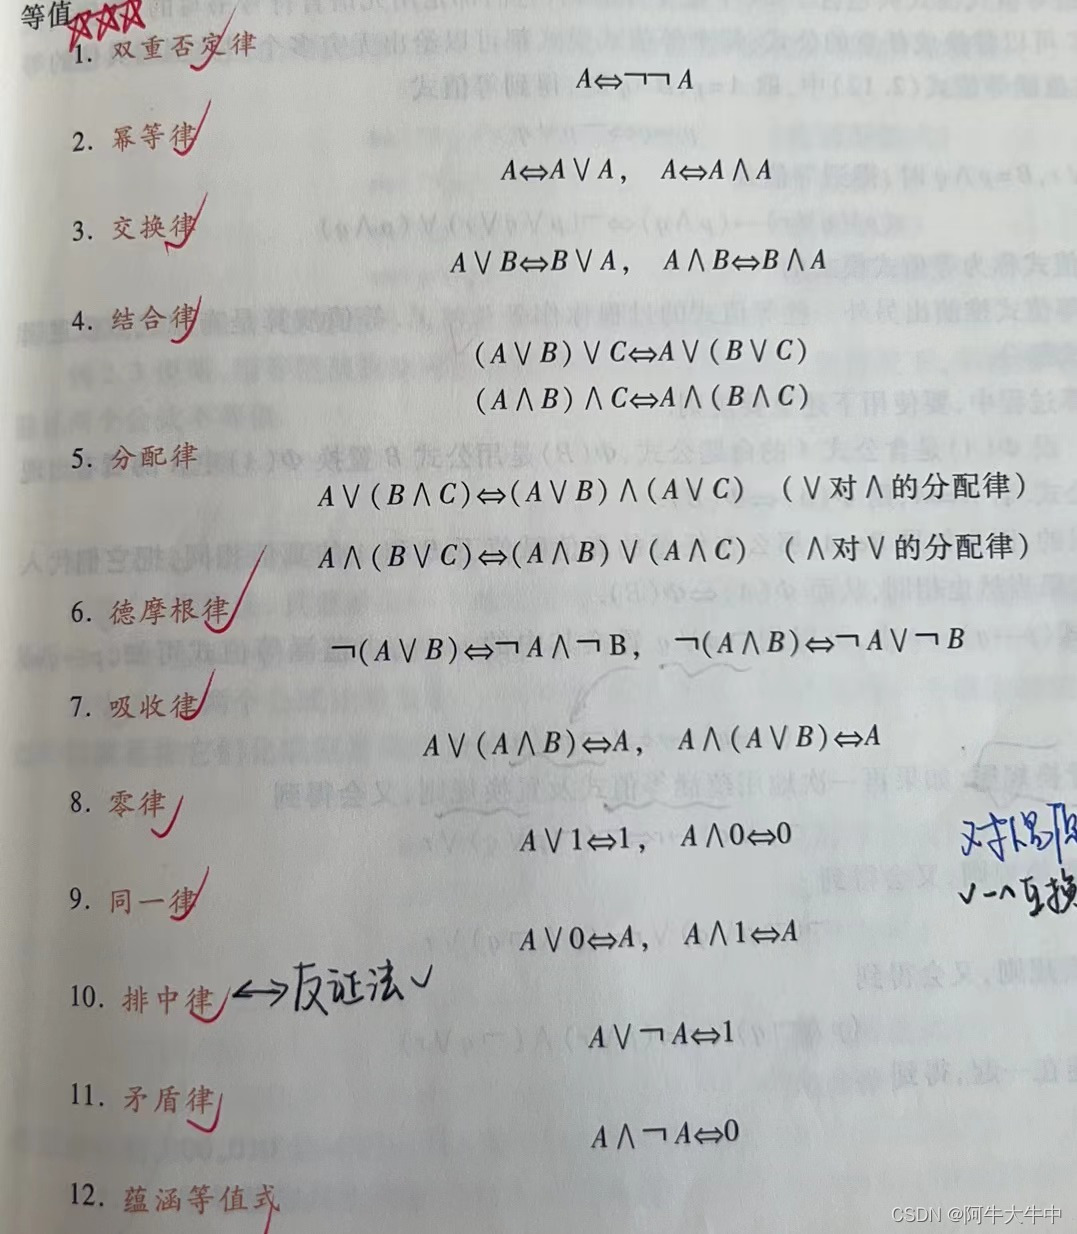 等值
1. 双重否定律
A⇔¬¬A
2. 幂等律
A⇔A∨A, A⇔A∧A
3. 交换律
A∨B⇔B∨A, A∧B⇔B∧A
4. 结合律
(A∨B)∨C⇔A∨(B∨C)
(A∧B)∧C⇔A∧(B∧C)
5. 分配律
A∨(B∧C)⇔(A∨B)∧(A∨C) (∨对∧的分配律)
A∧(B∨C)⇔(A∧B)∨(A∧C) (∧对∨的分配律)
6. 德摩根律
¬(A∨B)⇔¬A∧¬B, ¬(A∧B)⇔¬A∨¬B
7. 吸收律
A∨(A∧B)⇔A, A∧(A∨B)⇔A
8. 零律
A∨1⇔1, A∧0⇔0
对偶
9. 同一律
∨-∧互换
A∨0⇔A, A∧1⇔A
10. 排中律 ↔反证法
A∨¬A⇔1
11. 矛盾律
A∧¬A⇔0
12. 蕴涵等值式
CSDN @阿牛大牛中